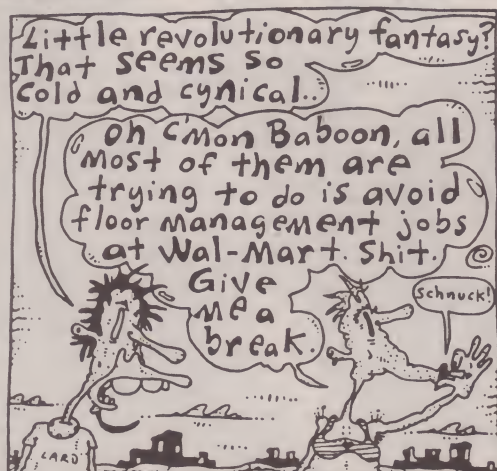 Little revolutionary fantasy?
That seems so
cold and cynical..
Oh c'mon Baboon, all
most of them are
trying to do is avoid
floor management jobs
at Wal-Mart. Shit.
Give
me a
break
Schnuck!
LARD